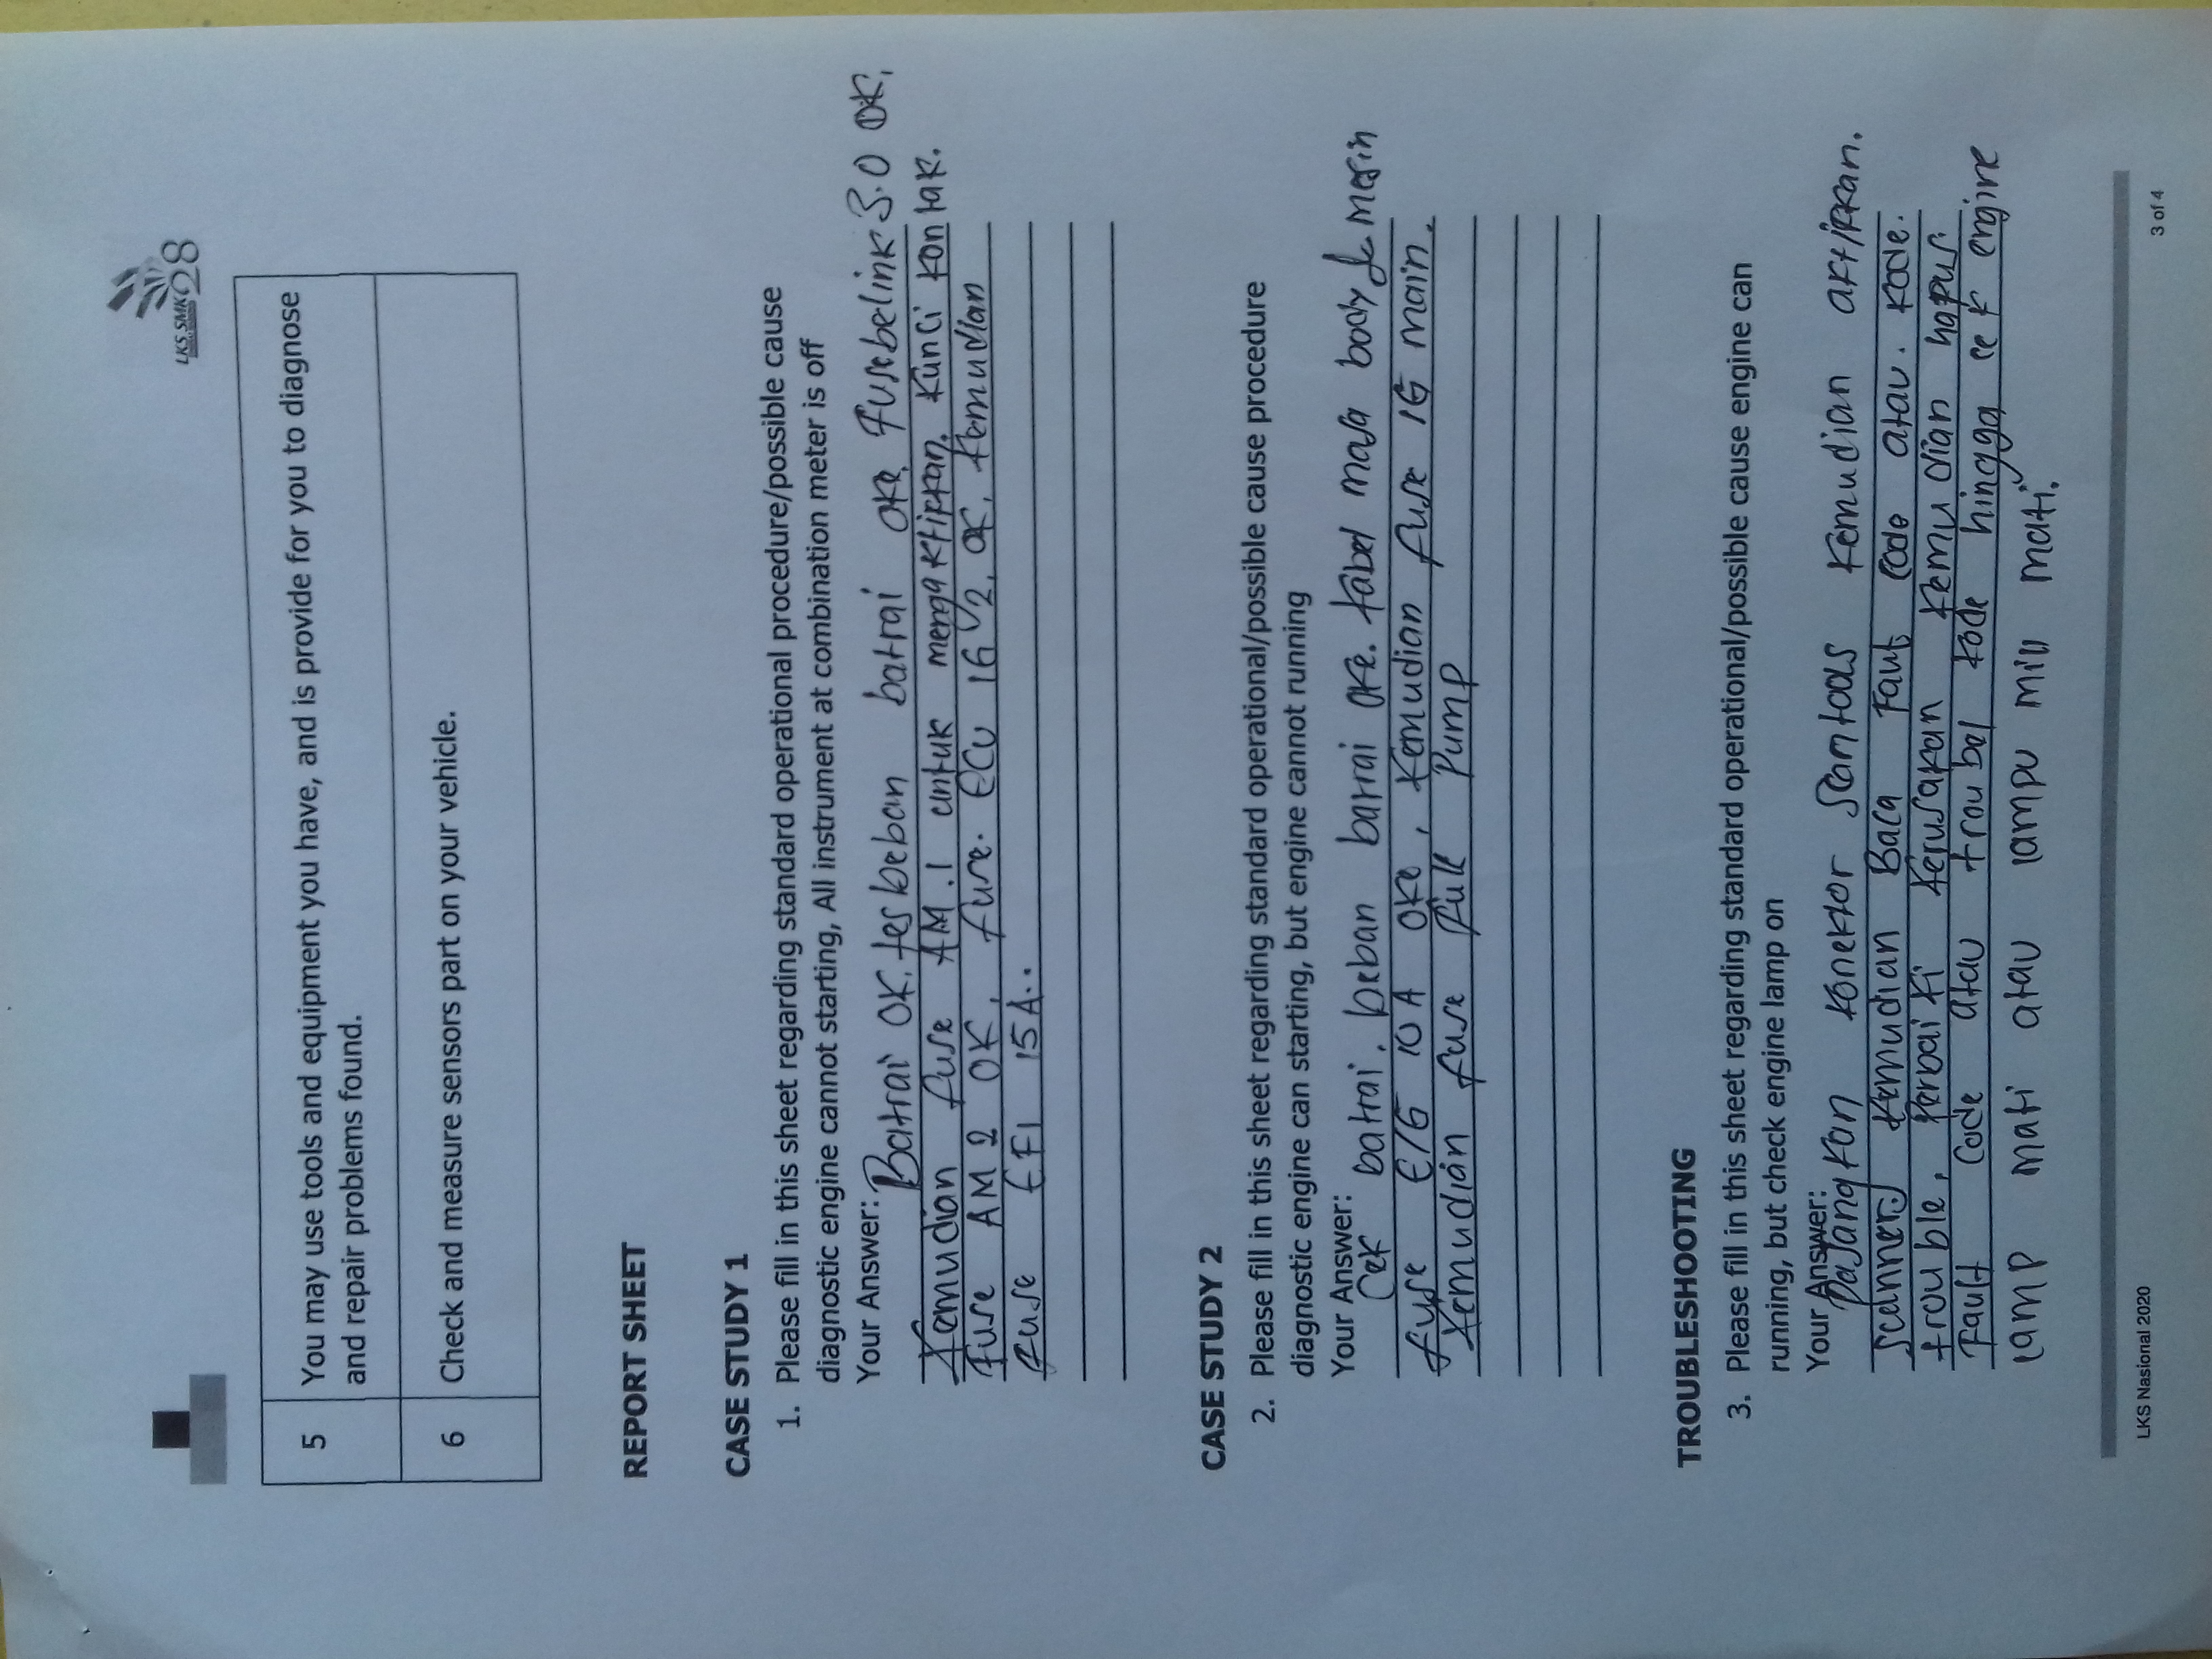 LKS SMK 28
5 You may use tools and equipment you have, and is provide for you to diagnose
and repair problems found.
6 Check and measure sensors part on your vehicle.
REPORT SHEET
CASE STUDY 1
1. Please fill in this sheet regarding standard operational procedure/possible cause
diagnostic engine cannot starting, All instrument at combination meter is off
Your Answer: Batrai OK. tes beban batrai oke. Fusebelink 3.0 OK,
Kemudian fuse AM.1 untuk mengaktipkan. Kunci kontak.
fuse AM 2 OK, fuse. ECU IG 2, OK, Kemudian
fuse EFI 15A..
CASE STUDY 2
2. Please fill in this sheet regarding standard operational/possible cause procedure
diagnostic engine can starting, but engine cannot running
Your Answer:
Cek batrai. beban barrai oke. kabel masa body & mesin
fuse E/G 10 A oke, Kemudian fuse IG main.
Kemudian fuse full Pump
TROUBLESHOOTING
3. Please fill in this sheet regarding standard operational/possible cause engine can
running, but check engine lamp on
Your Answer:
Pasangkan konektor Scantools Kemudian aktipkan.
Scanner. Kemudian Baca Faut code atau. kode.
trouble, Perbaiki Kerusakan Kemudian hapus.
Fault Code atau troubel kode hingga cek engine
lamp mati atau lampu mill mati.
LKS Nasional 2020
3 of 4